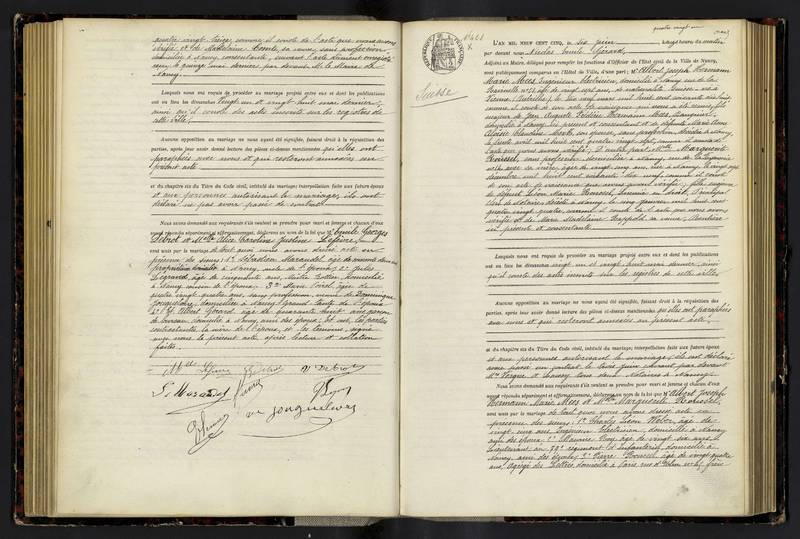 quatre vingt treize, comme il conste de l'acte que nous avons
vérifié et de Madeleine Comte, sa veuve, sans profession
domiciliée à Nancy, consentante, suivant acte dûment enregistré
reçu le quinze mai dernier par devant Me
Nancy.
Lesquels nous ont requis de procéder au mariage projeté entre eux et dont les publications
ont eu lieu les dimanches vingt un et vingt huit mai dernier,
ainsi qu'il conste des actes inscrits sur les registres de
cette ville.
Aucune opposition au mariage ne nous ayant été signifiée, faisant droit à la réquisition des
parties, après leur avoir donné lecture des pièces ci-dessus mentionnées qu'elles ont
paraphées avec nous et qui resteront annexées au
présent acte
et du chapitre six du Titre du Code civil, intitulé du mariage; interpellation faite aux futurs époux
et aux personnes autorisant le mariage, ils ont
déclaré ne pas avoir passé de contrat
Nous avons demandé aux requérants s'ils veulent se prendre pour mari et femme et chacun d'eux
ayant répondu séparément et affirmativement, déclarons au nom de la loi que Mr Emile Georges
Debrot et Mlle Alice Caroline Justine Lefèvre
sont unis par le mariage de tout quoi nous avons dressé acte en
présence des sieurs: 1° Sébastien Marandel, âgé de
à Nancy, oncle de l'époux; 2° Jules
Legrand, âgé de cinquante ans, domicilié
à Nancy, cousin de l'époux; 3°
quatre vingt quatre ans, sans profession, veuve de Dominique
Jonquelaire, domiciliée à Nancy, grand'tante de l'époux
et 4° Albert Gérard, âgé de quarante huit ans, garçon
de bureau, domicilié à Nancy, ami des époux; et ont, les parties
contractantes, la mère de l'époux, et les témoins, signé
avec nous le présent acte, après lecture et collation
faites.
A Lefèvre E Debrot Ve Debrot
S. Marandel
ve Jonquelaire
quatre vingt un
No 401
X
Suisse
L'AN MIL NEUF CENT CINQ, le six juin, à heures du matin
par devant nous Nicolas Emile Gérard,
Adjoint au Maire, délégué pour remplir les fonctions d'Officier de l'État civil de la Ville de Nancy,
sont publiquement comparus en l'Hôtel de Ville, d'une part; Mr Albert Joseph Hermann
Marie Mees, Ingénieur électricien, domicilié à Nancy, rue de la
âgé de vingt sept ans, de nationalité Suisse, né à
Vienne (Autriche), le
comme il conste d'un acte de naissance qui nous a été remis; fils
majeur de Jean Auguste Frédéric Hermann Mees,
domicilié à Nancy, ici présent et consentant et de défunte Marie
Aloïse Claudine son épouse, sans profession, décédée à Nancy,
le trente avril mil huit cent quatre vingt sept, comme il conste de
l'acte que nous avons vérifié; et d'autre part, Mlle Marguerite
Roussel, sans profession, domiciliée à Nancy, rue de la Pépinière
avec sa mère, âgée de vingt cinq ans, née à Nancy, le vingt sept
décembre mil huit cent soixante dix neuf, comme il conste
de son acte de naissance que nous avons vérifié; fille majeure
de défunt Léon Marie Roussel, licencié en droit, Principal
Clerc de notaire, décédé à Nancy, le cinq janvier mil huit cent
quatre vingt quatre, comme il conste de l'acte que nous avons
vérifié et de Marie Madeleine sa veuve, Rentière
ici présente et consentante.
Lesquels nous ont requis de procéder au mariage projeté entre eux et dont les publications
ont eu lieu les dimanches vingt un et vingt huit mai dernier, ainsi
qu'il conste des actes inscrits sur les registres de cette ville
Aucune opposition au mariage ne nous ayant été signifiée, faisant droit à la réquisition des
parties, après leur avoir donné lecture des pièces ci-dessus mentionnées qu'elles ont paraphées
avec nous et qui resteront annexées au présent acte.
et du chapitre six du Titre du Code civil, intitulé du mariage; interpellation faite aux futurs époux
et aux personnes autorisant le mariage, ils ont déclaré
avoir passé un contrat le trois juin courant par devant
Mes et tous deux Notaires à Nancy
Nous avons demandé aux requérants s'ils veulent se prendre pour mari et femme et chacun d'eux
ayant répondu séparément et affirmativement, déclarons au nom de la loi que Mr Albert Joseph
Hermann Marie Mees et Mlle Marguerite Roussel,
sont unis par le mariage de tout quoi nous avons dressé acte en
présence des sieurs: 1° Charles Léon Weber, âgé de
vingt cinq ans, Ingénieur Electricien, domicilié à Nancy
ami des époux; 2° Maurice âgé de vingt six ans,
Lieutenant au 79e régiment d'Infanterie, domicilié à
Nancy, ami des époux; 3° Pierre Roussel, âgé de vingt quatre
ans, Agrégé des Lettres, domicilié à Paris, rue d'Ulm No 45, frère